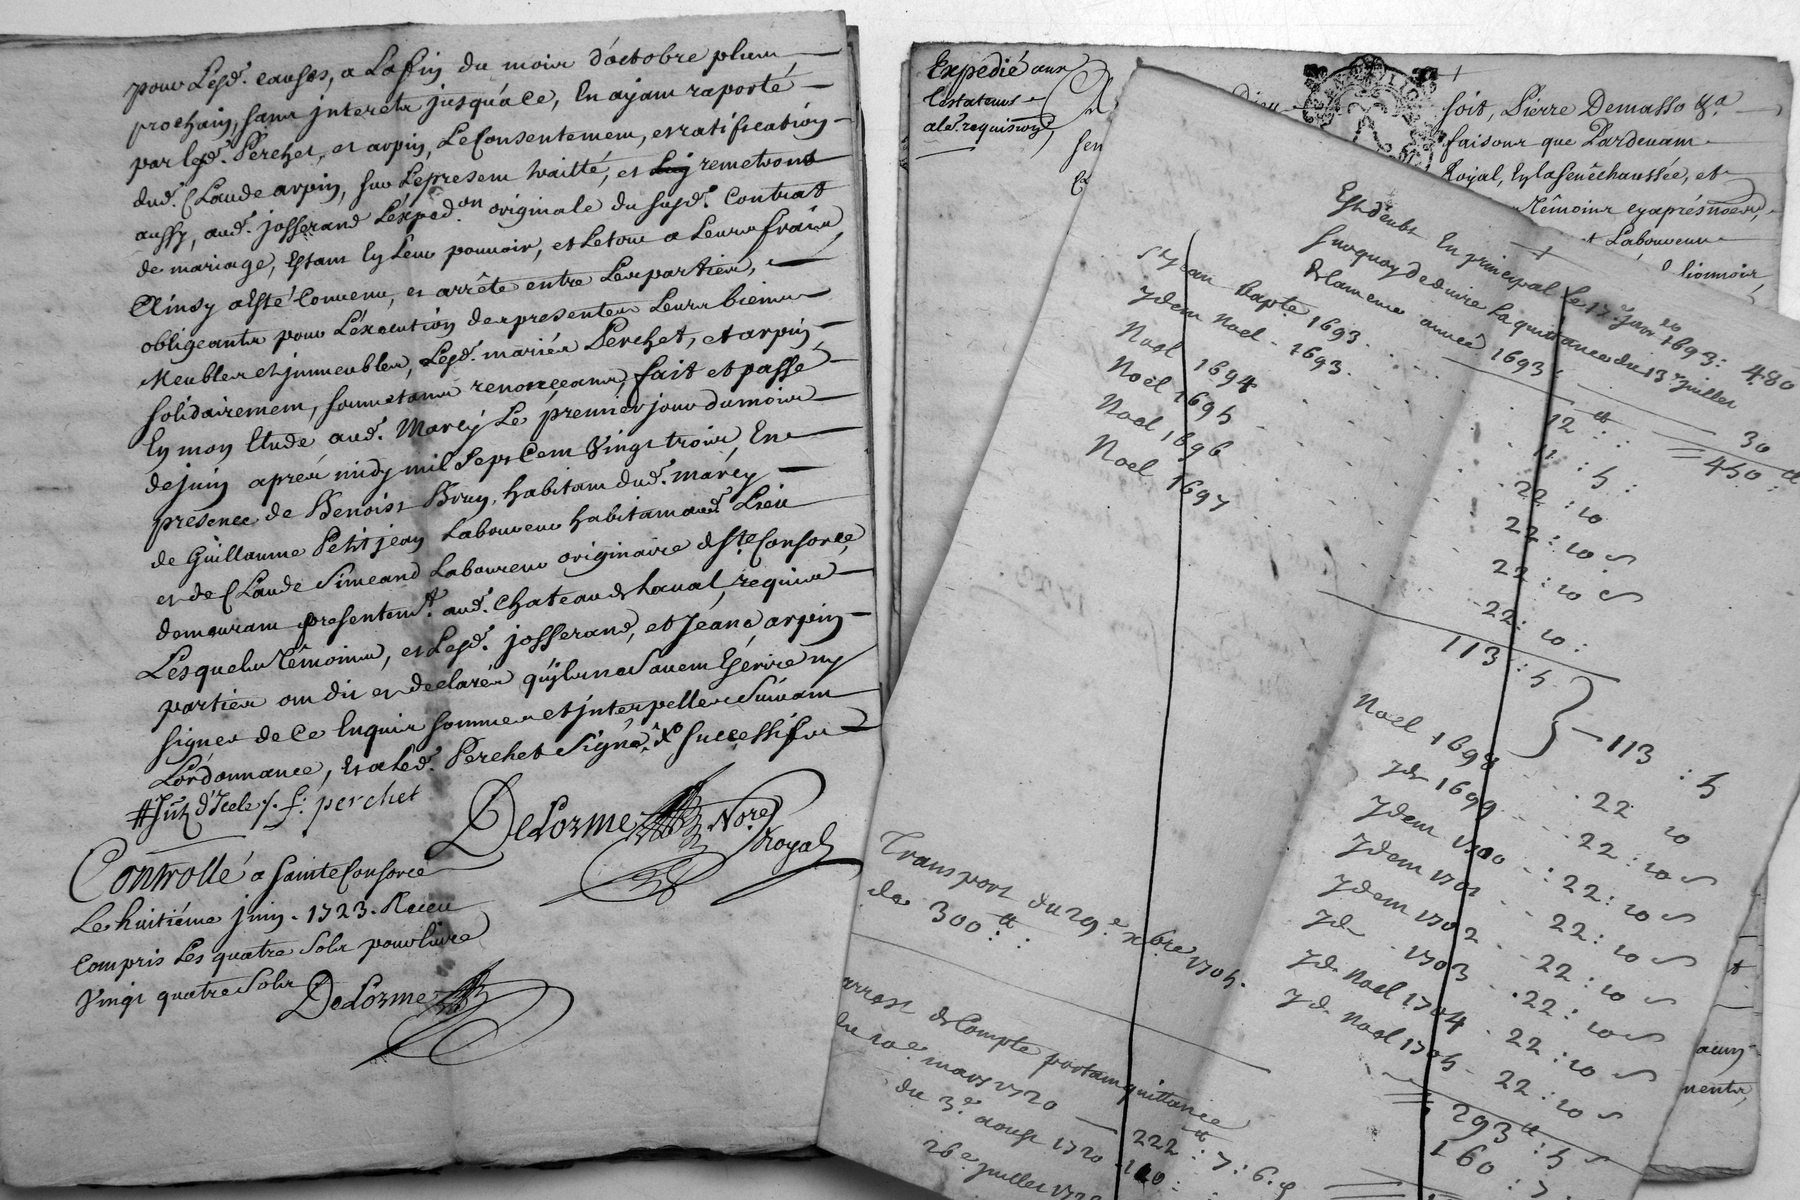 pour Lesd. causes, a Laffin du moins d'octobre plus
prochain, sans jnterets jusqu'a ce, En ayam raporté
par lesd. Perchet, et arpin, Le Consentement, et ratification
dud. Claude arpin, sur Le present traitté, et remetront
aussy, aud. josserand L'exped.on originale du susd. Contrat
de mariage, Estant En Leur pouvoir, et Le tout a Leurs fraix,
Ainsy a Esté Convenu, et arrêté entre Les parties,
obligeants pour L'éxecution des presentes Leurs biens
Meubles et jmmeubles, Lesd. mariés Perchet, et arpin,
solidairement, soumetans renonceans, fait et passé
En mon Etude aud. Marcy Le premier jour du mois
de juin aprés midy mil Sept Cent Vingt trois En
presence de Benoist Brun, habitant dud. marcy
de Guillaume Petitjean Laboureur habitant aud. Lieu
et de Claude Simeand Laboureur originaire de Ste Consorce,
demeurant presentem.t aud. Chateau de Laval, requis
Lesquels têmoins, et Lesd. josserand, et Jeane arpin
parties ont dit et declaré qu'ils ne savent Escrire ny
signer de ce Enquis sommés et jnterpellés Suivant
L'ordonnance, Et a Led. Perchet Signé, successifs
f: perchet
DeLorme Nore. Royal
Controllé a Sainte Consorce
Le huitième juin. 1723. Receu
Compris Les quatre Sols pour livre
Vingt quatre Sols DeLorme
Expedié aux
a Led. requisition
soit, Pierre Demasso
faisons que Pardevant
Royal, En la senêchaussée, et
Têmoins cy aprés
Laboureur
Est deub En principal Le 17. Janv. 1693: 480
surquoy deduire la quittance du 13 Juillet
de la mesme année 1693: 30
450:
St Jean Bapte. 1693 12:
Jdem Noel. 1693. 11: 5:
Noel 1694 22: 10
Noel 1695 22: 10
Noel 1696 22: 10
Noel 1697 22: 10:
113: 5
113: 5
Noel 1698 22 10
Jd. 1699 22: 10
Jdem 1700 22: 10
Jdem 1701 22: 10
Jdem 1702 22: 10
Jd. 1703 22: 10
Jd. Noel 1704 22: 10
Jd. Noel 1705 22: 10
293: 5
160: 7.
Transport du 29e xbre 1705.
de 300:
arrest de Compte portant quittance
du 20e. mars 1720 222: 7: 6.
du 3e. aoust 1720
26e. juillet